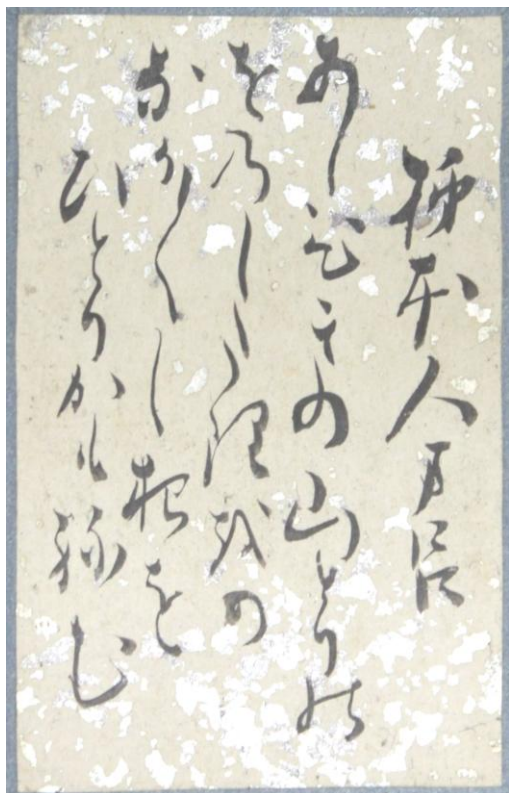 柿本人万呂
あしひきの山とりの
をのしたりをの
なか〱し夜を
ひとりかもねむ